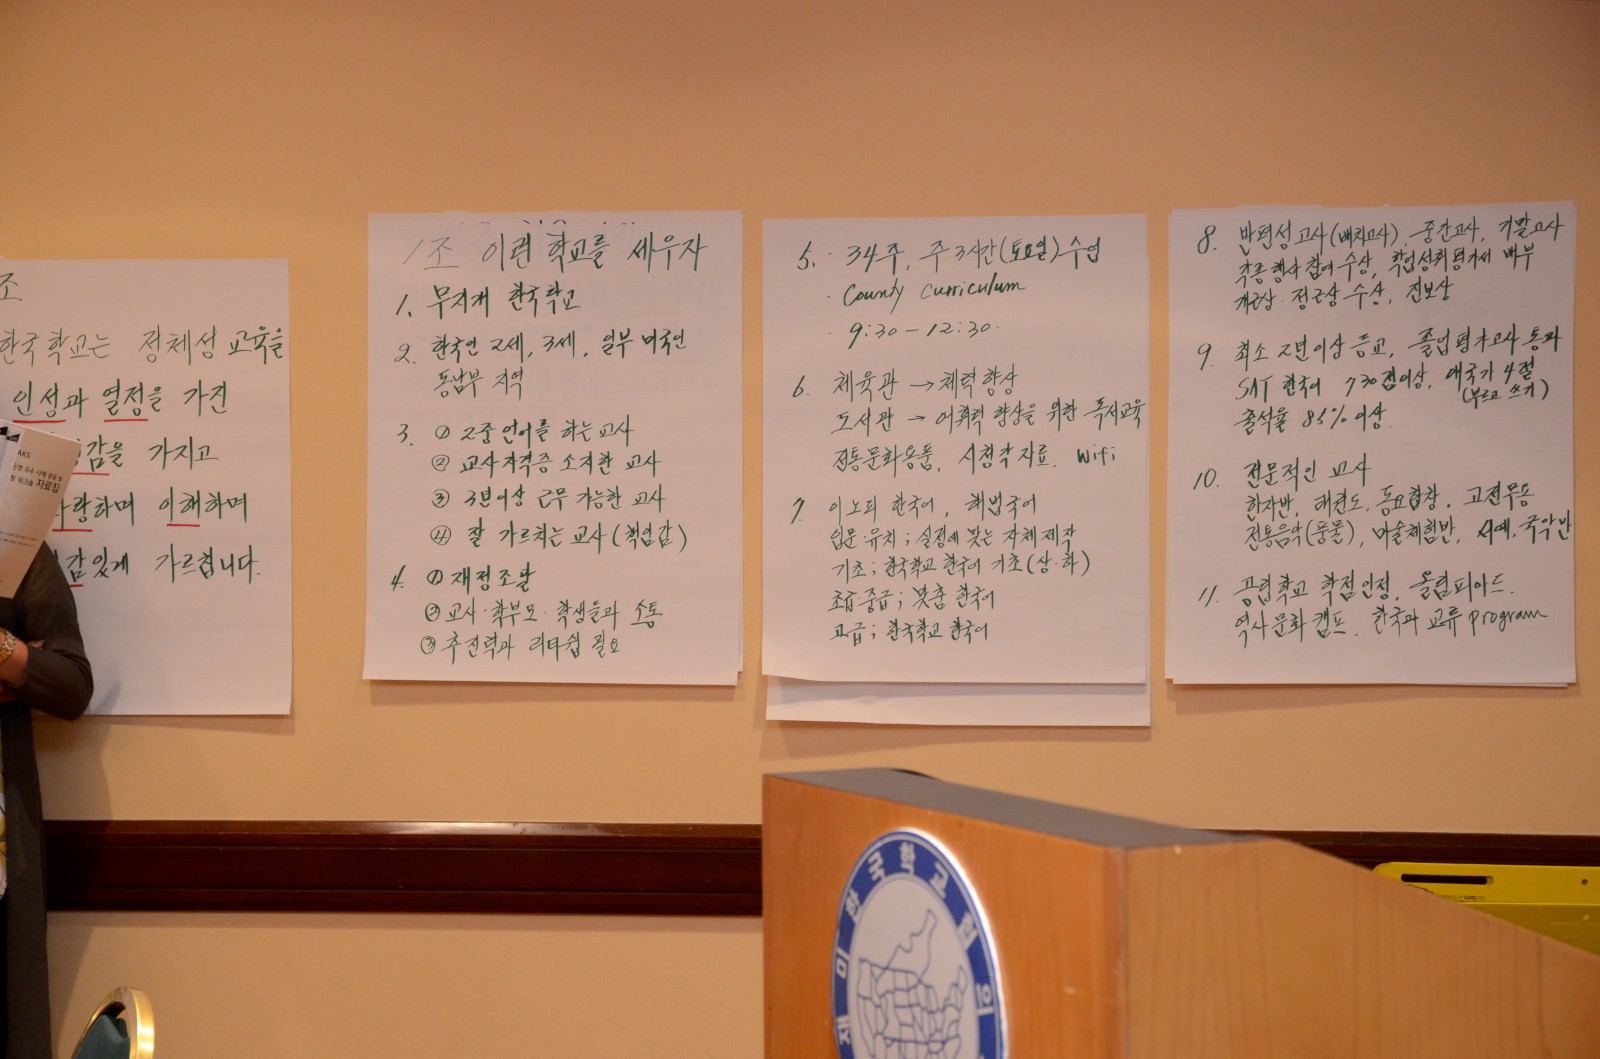 조
한국학교는 정체성 교육을
인성과 열정을 가진
감을 가지고
사랑하며 이해하며
감있게 가르칩니다.
AKS
자료집
1조 이런 학교를 세우자
1. 무지개 한국학교
2. 한국인 2세, 3세, 일부 미국인
동남부 지역
3. ① 2중언어를 하는 교사
② 교사자격증 소지한 교사
③ 3년이상 근무 가능한 교사
④ 잘 가르치는 교사(책임감)
4. ① 재정조달
② 교사·학부모·학생들과 소통
③ 추진력과 리더쉽 필요
5. · 34주, 주 3시간(토요일) 수업
· County curriculum
· 9:30 - 12:30
6. 체육관 → 체력향상
도서관 → 어휘력 향상을 위한 독서교육
전통문화용품, 시청각자료, Wifi
7. 이노티 한국어, 해법국어
입문·유치; 실정에 맞는 자체제작
기초; 한국학교 한국어 기초(상·하)
초급·중급; 맞춤 한국어
고급; 한국학교 한국어
8. 반편성고사(배치고사), 중간고사, 기말고사
각종행사 참여수상, 학업성취평가서 배부
개근상·정근상 수상, 진보상
9. 최소 2년이상 등교, 졸업평가고사 통과
SAT 한국어 730점이상, 애국가 4절
(부르고 쓰기)
출석율 85% 이상
10. 전문적인 교사
한자반, 태권도, 동요합창, 고전무용
전통음악(풍물), 미술체험반, 서예, 국악반
11. 공립학교 학점인정, 올림피아드,
역사문화캠프, 한국과 교류 program
재미한국학교협의